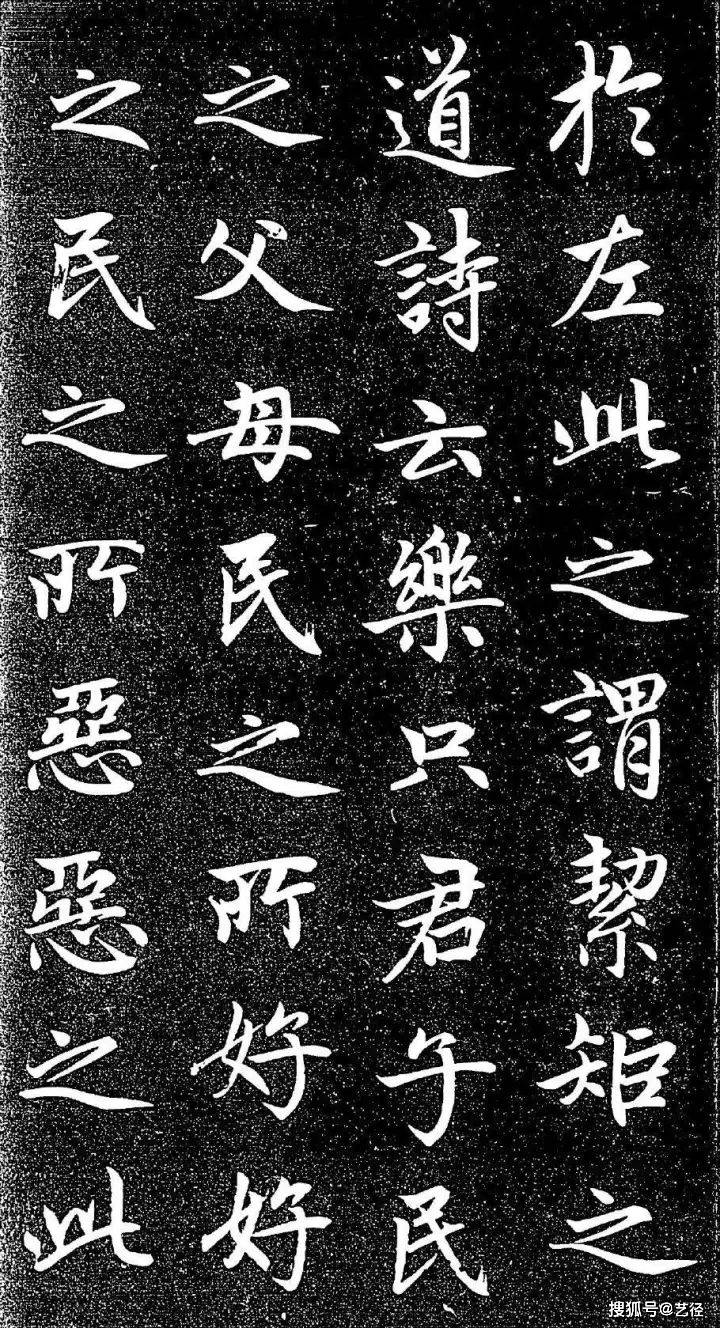 於左此之謂絜矩之
道詩云樂只君子民
之父母民之所好好
之民之所惡惡之此
搜狐号@艺径